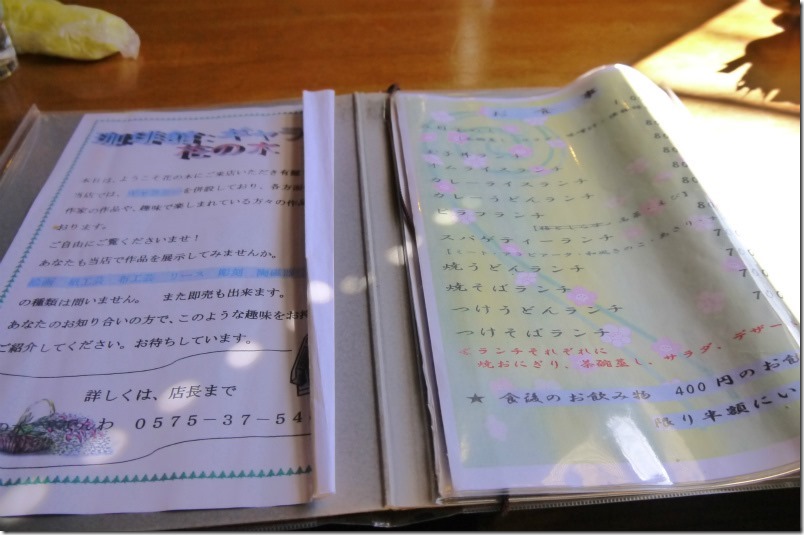 珈琲館・ギャラ
花の木
本日は、ようこそ花の木にご来店いただき有難
当店では、を併設しており、各方面
作家の作品や、趣味で楽しまれている方々の作品
おります。
ご自由にご覧くださいませ！
あなたも当店で作品を展示してみませんか。
絵画 紙工芸 布工芸 リース 彫刻 陶磁器
の種類は問いません。 また即売も出来ます。
あなたのお知り合いの方で、このような趣味をお持
ご紹介してください。お待ちしています。
詳しくは、店長まで
わ 0575-37-54
お食
オムライスランチ
カレーライスランチ
カレーうどんランチ
ピラフランチ
スパゲティーランチ
焼うどんランチ
焼そばランチ
つけうどんランチ
つけそばランチ
ランチそれぞれに
焼おにぎり、茶碗蒸し、サラダ、デザー
★ 食後のお飲み物 400円のお飲
限り半額にい